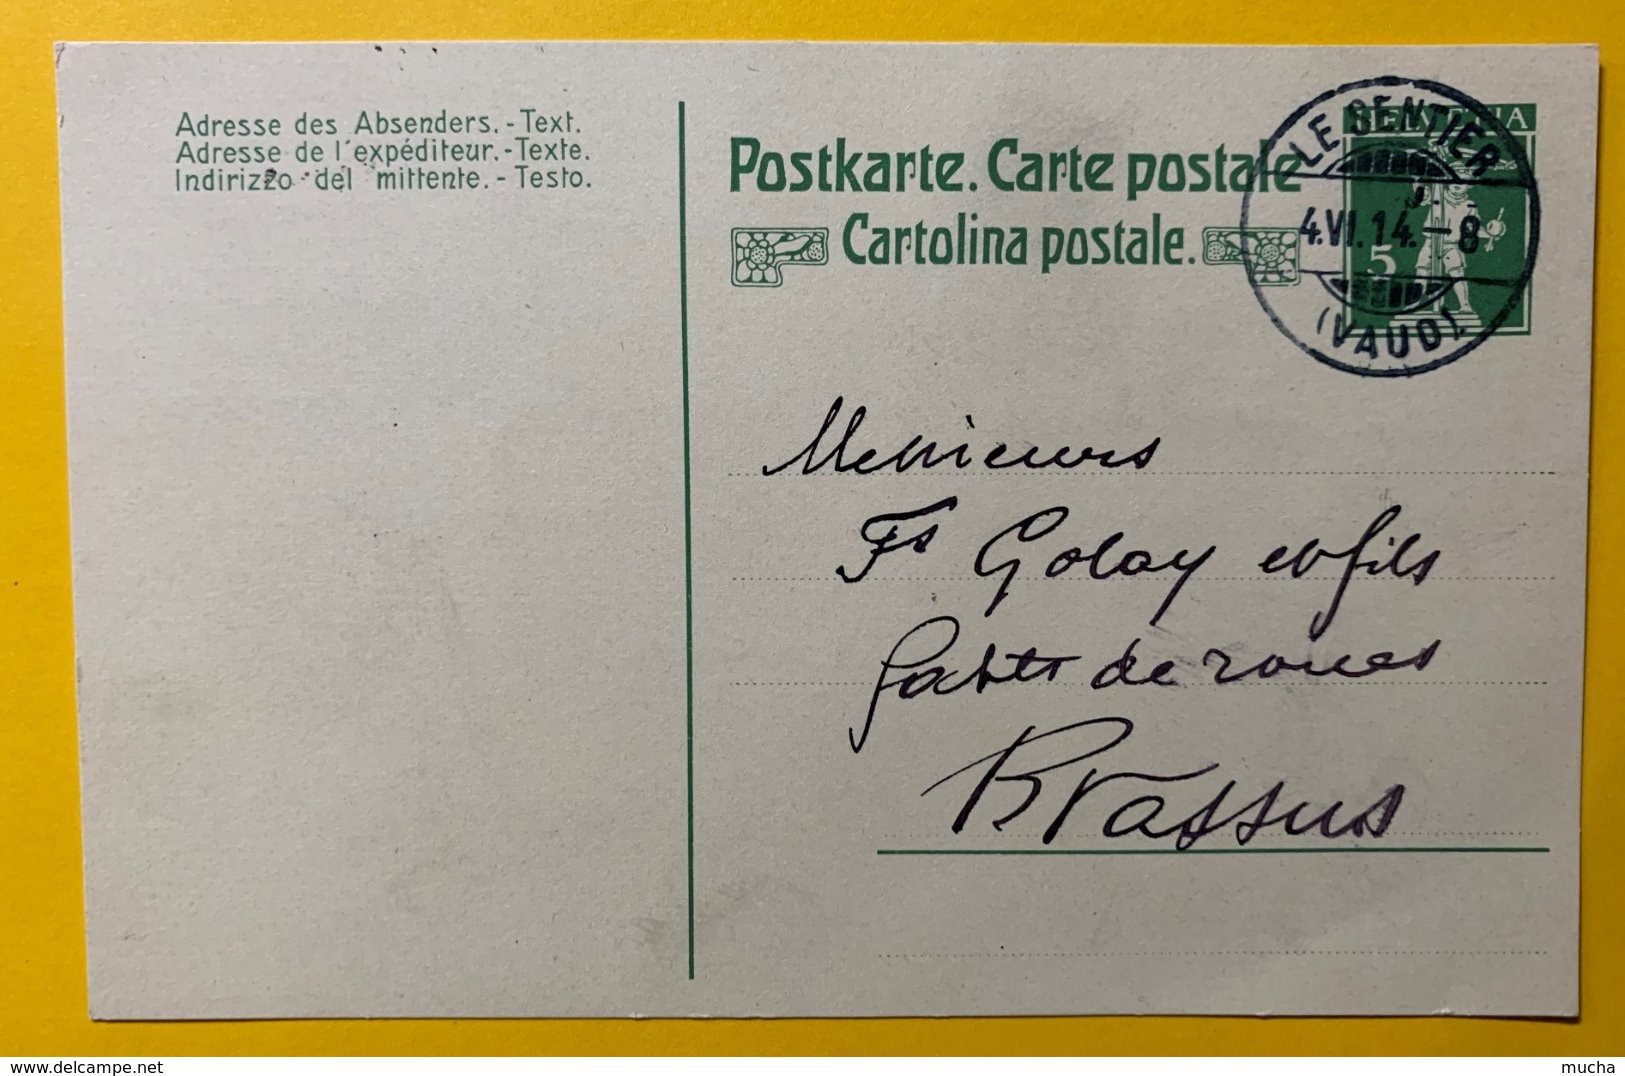 Adresse des Absenders. - Text.
Adresse de l'expéditeur. - Texte.
Indirizzo del mittente. - Testo.
Postkarte. Carte postale
Cartolina postale.
HELVETIA
5
LE SENTIER
4.VI.14.-8
(VAUD).
Messieurs
Fs Golay et fils
fabts de roues
Brassus
www.delcampe.net
mucha